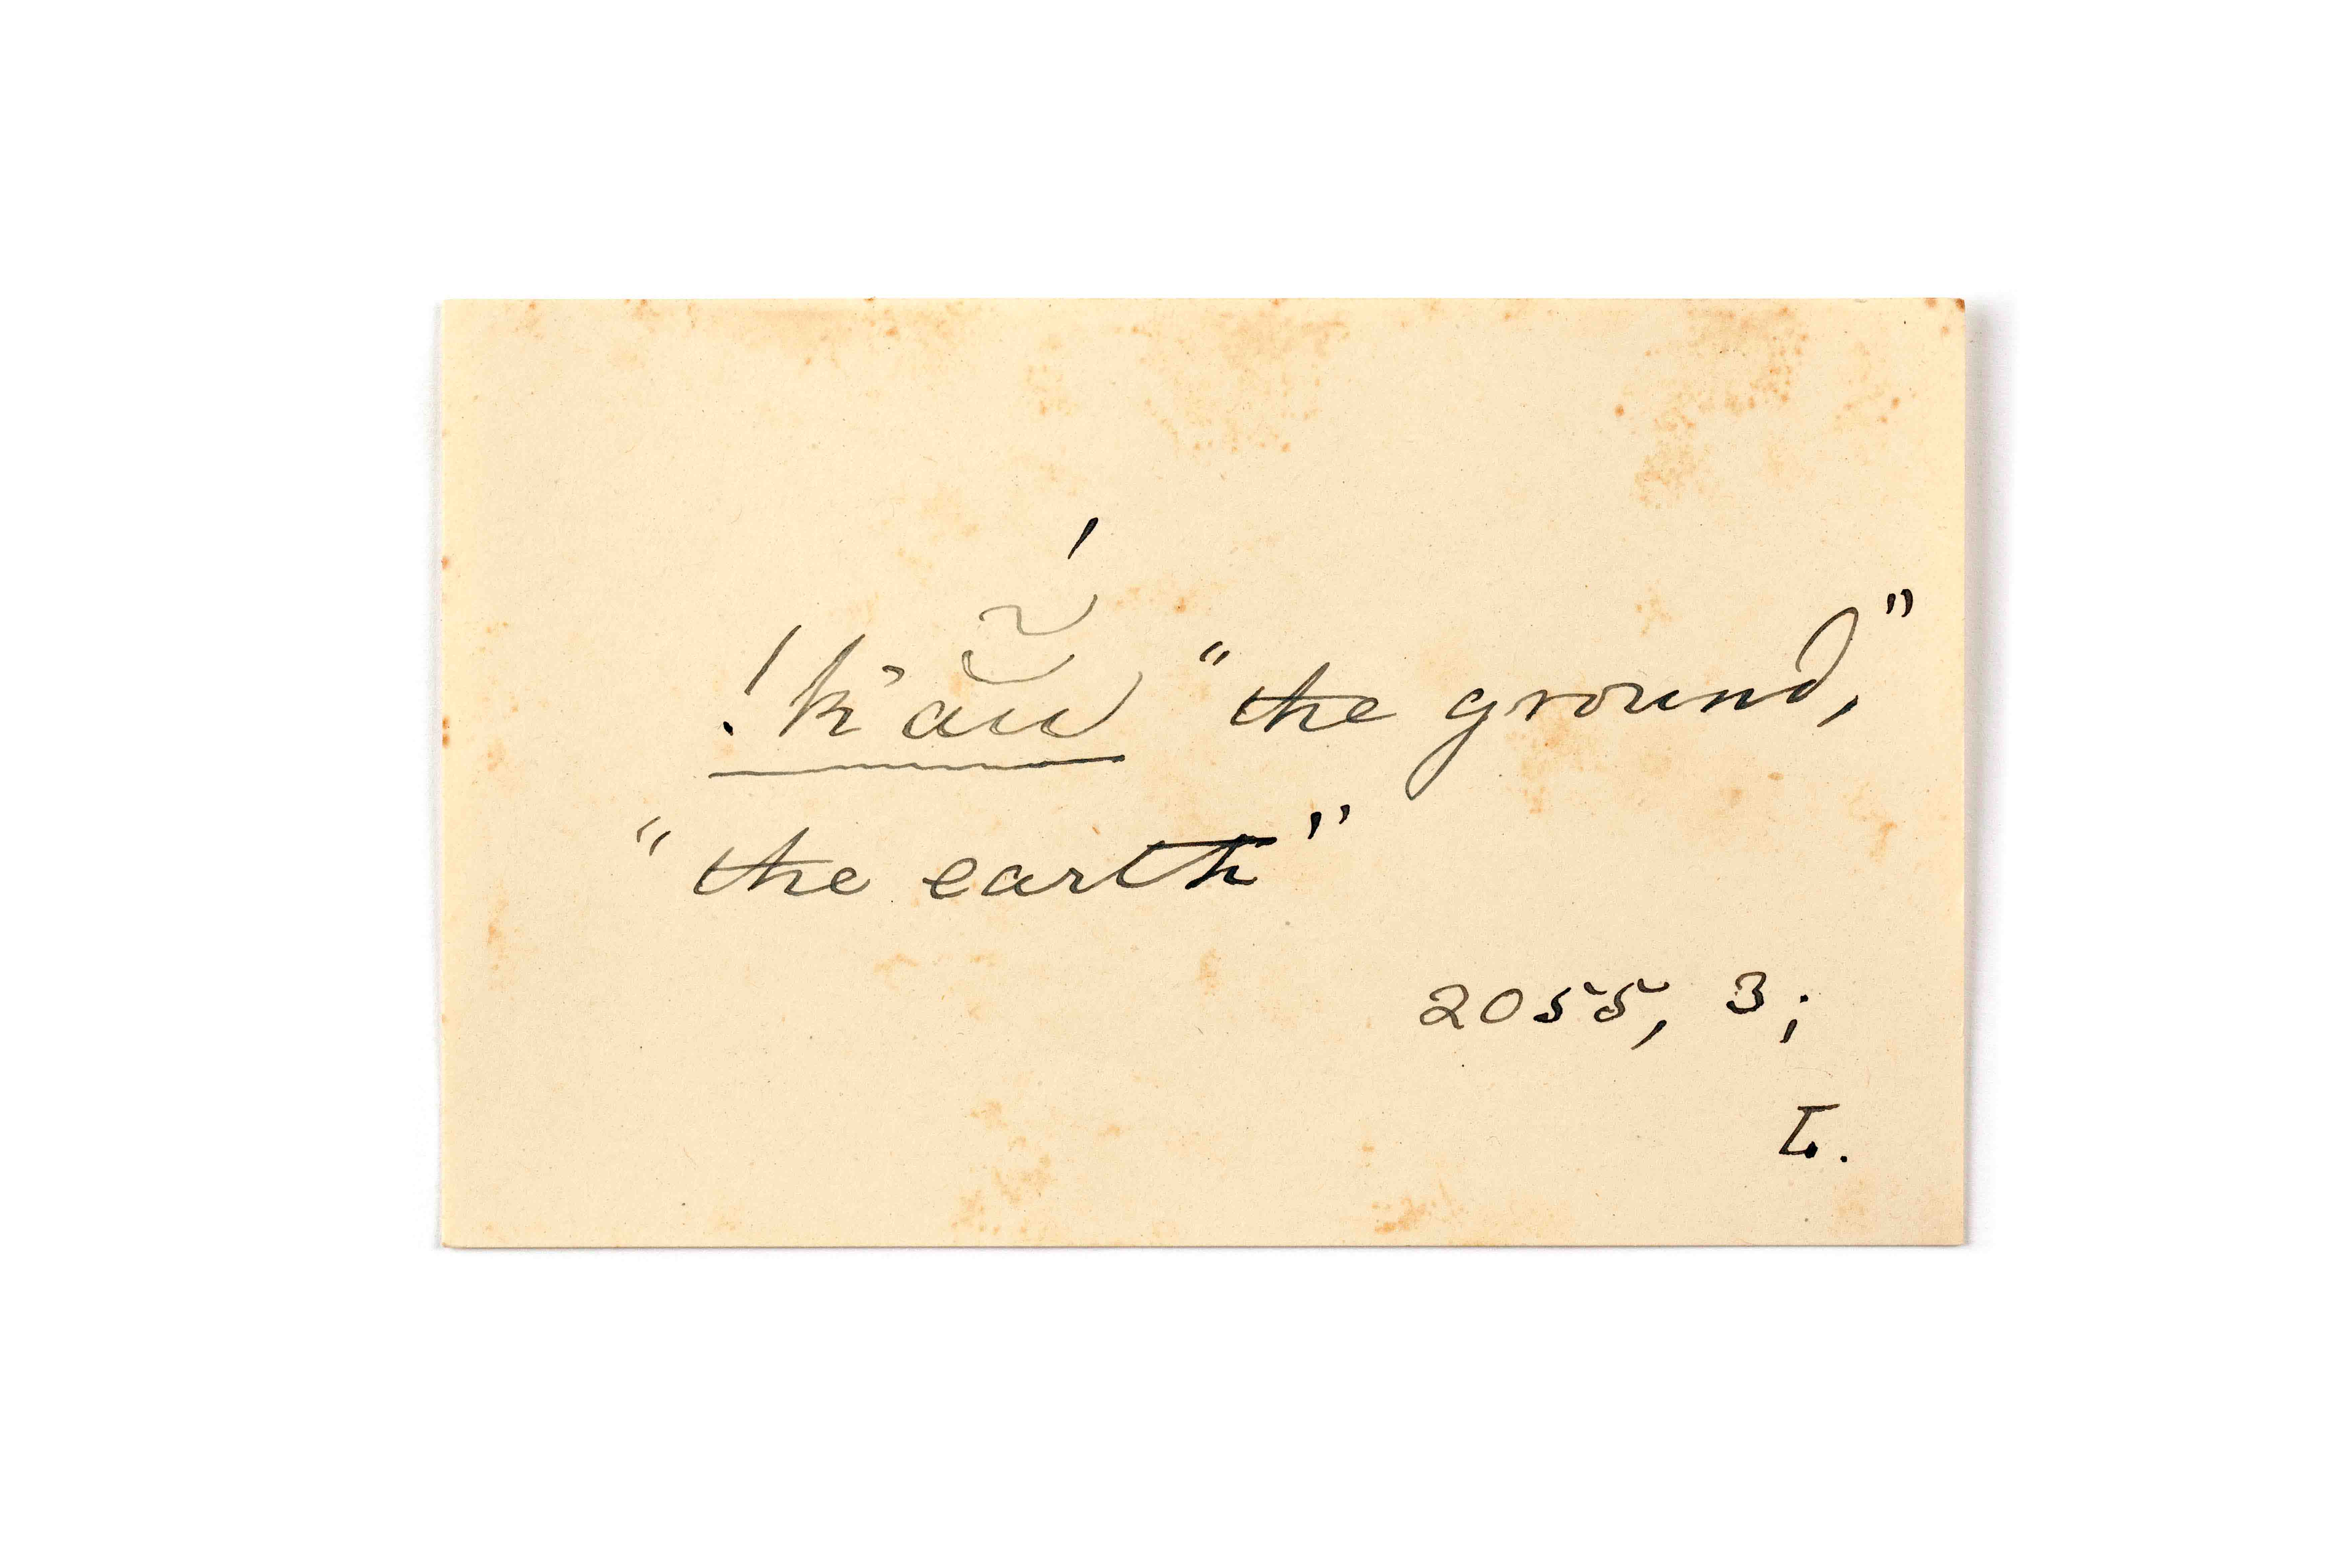 !k̔ãŭ́ "the ground,"
"the earth"
2055, 3;
L.